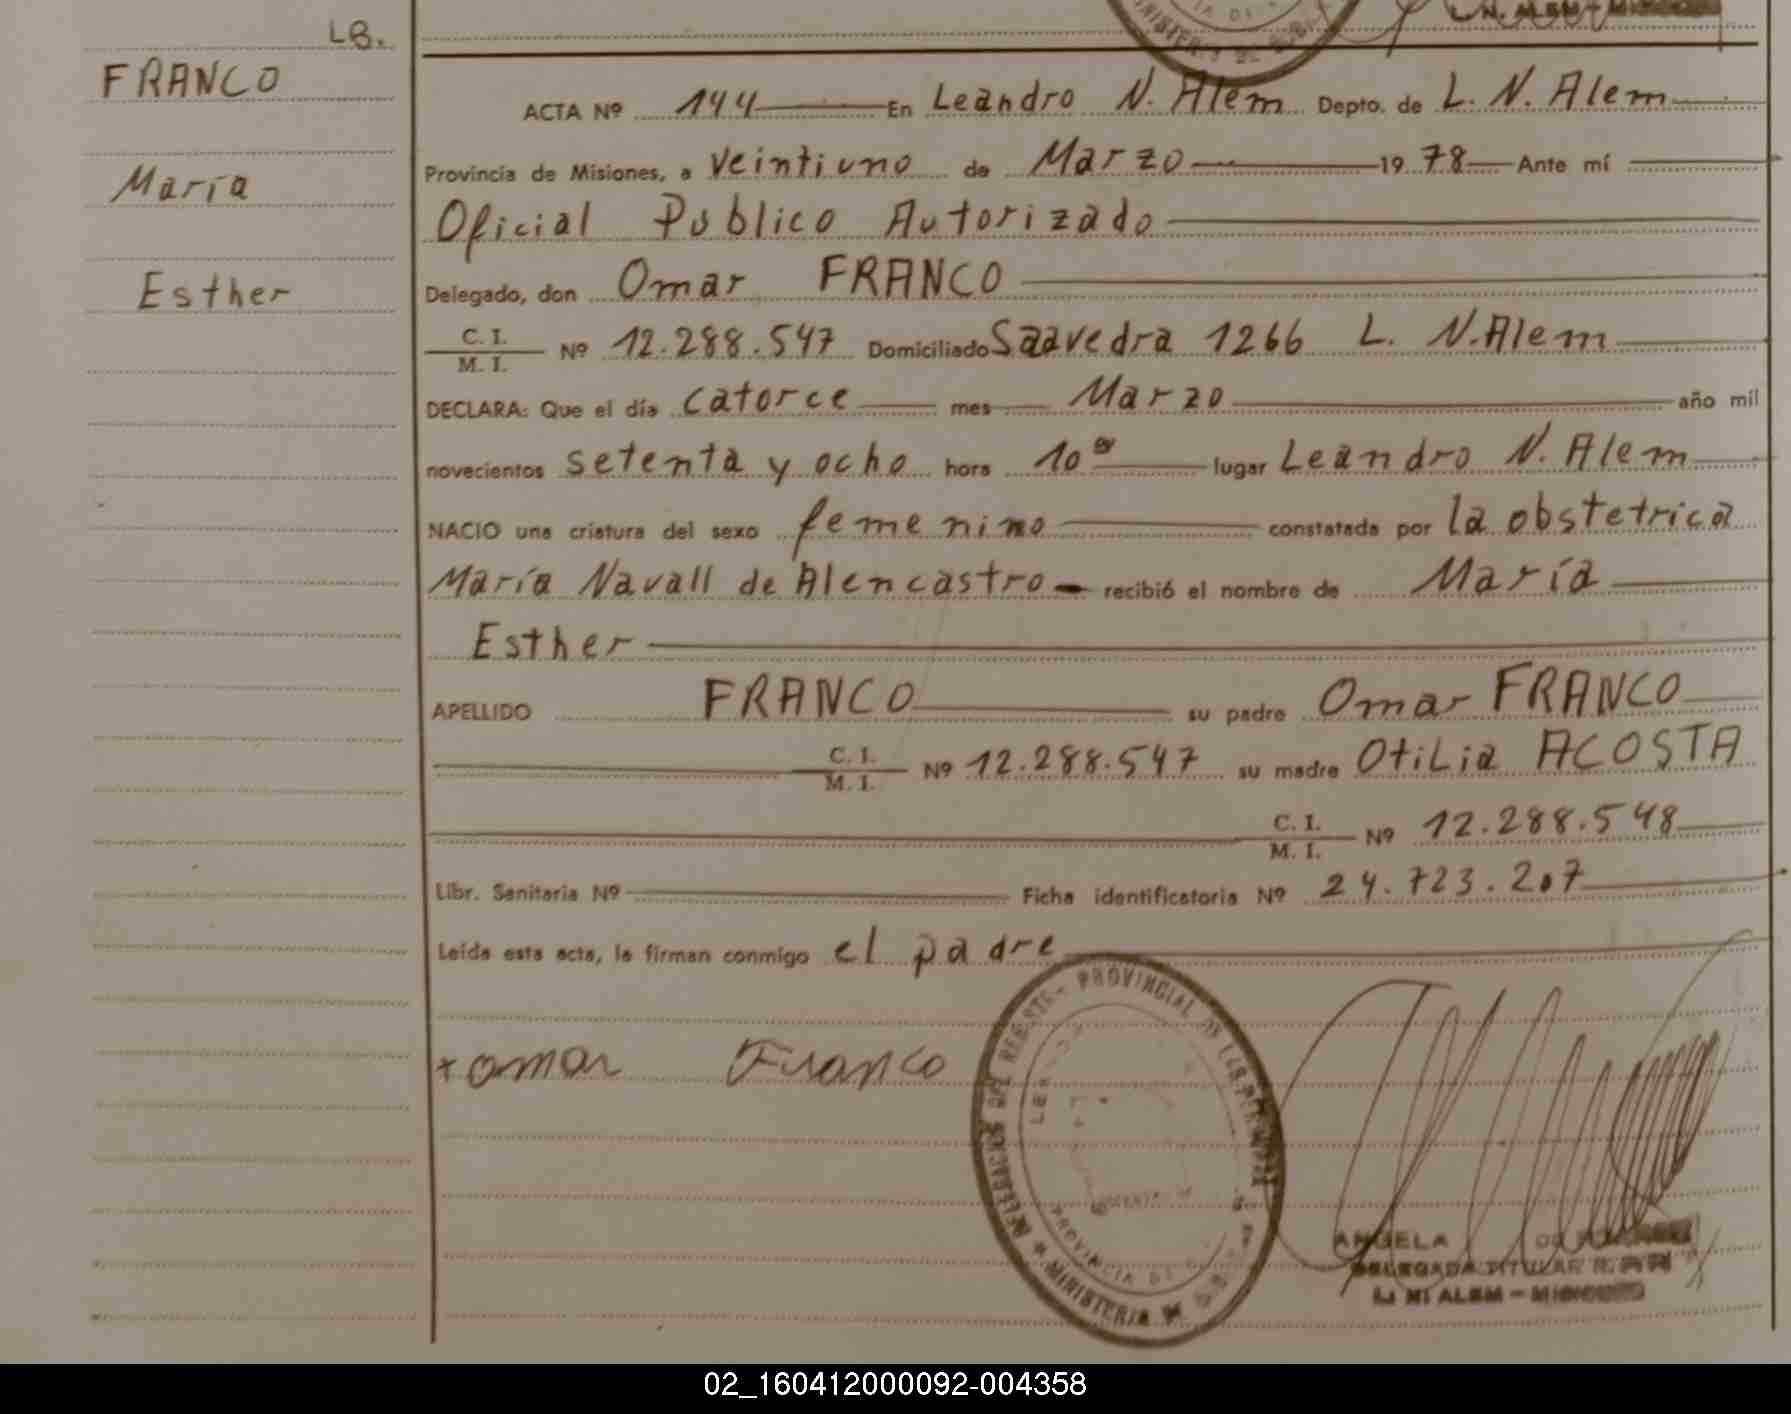 LB.
FRANCO
María
Esther
N. ALEM - MISIONES
ACTA Nº 144 En Leandro N. Alem Depto. de L. N. Alem
Provincia de Misiones, a veintiuno de Marzo 1978 Ante mí
Oficial Público Autorizado
Delegado, don Omar FRANCO
C. I.
M. I.
Nº 12.288.547 Domiciliado Saavedra 1266 L. N. Alem
DECLARA: Que el día catorce mes Marzo año mil
novecientos setenta y ocho hora 10 lugar Leandro N. Alem
NACIO una criatura del sexo femenino constatada por la obstetrica
María Navall de Alencastro recibió el nombre de María
Esther
APELLIDO FRANCO su padre Omar FRANCO
C. I.
M. I.
Nº 12.288.547 su madre Otilia ACOSTA
C. I.
M. I.
Nº 12.288.548
Libr. Sanitaria Nº Ficha identificatoria Nº 24.723.207
Leída esta acta, la firman conmigo el padre
+ omar Franco
PROVINCIAL DE LAS PERSONAS
PROVINCIA DE
MINISTERIO
ANGELA DE
DELEGADA TITULAR R. P. P.
L. N. ALEM - MISIONES
02_160412000092-004358